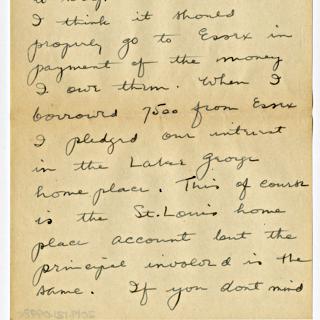 I think it should
properly go to Essex in
payment of the money
I owe them. When I
borrowed 7500 from Essex
I pledged our interest
in the Lake George
home place. This of course
is the St. Louis home
place account but the
principel involved is the
same. If you dont mind